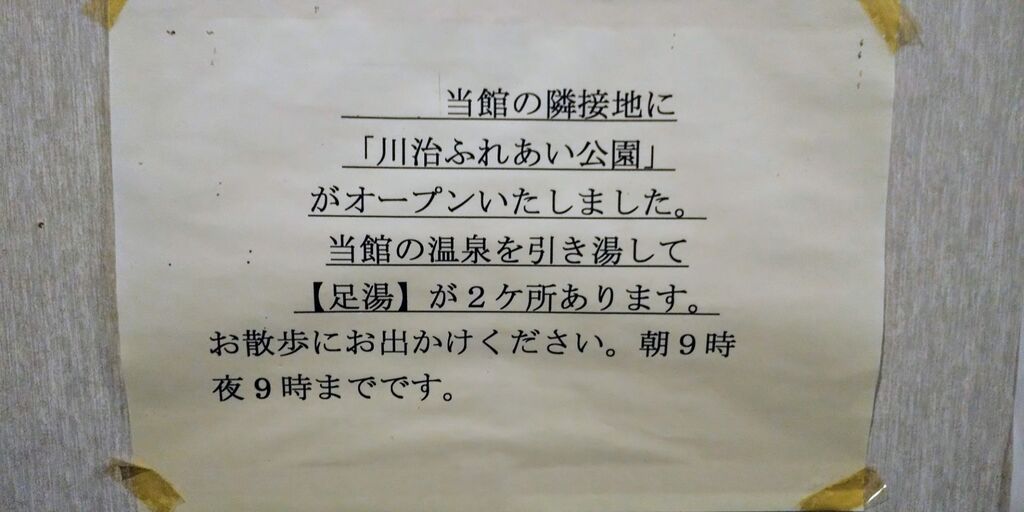 当館の隣接地に
「川治ふれあい公園」
がオープンいたしました。
当館の温泉を引き湯して
【足湯】が２ケ所あります。
お散歩にお出かけください。朝９時
夜９時までです。